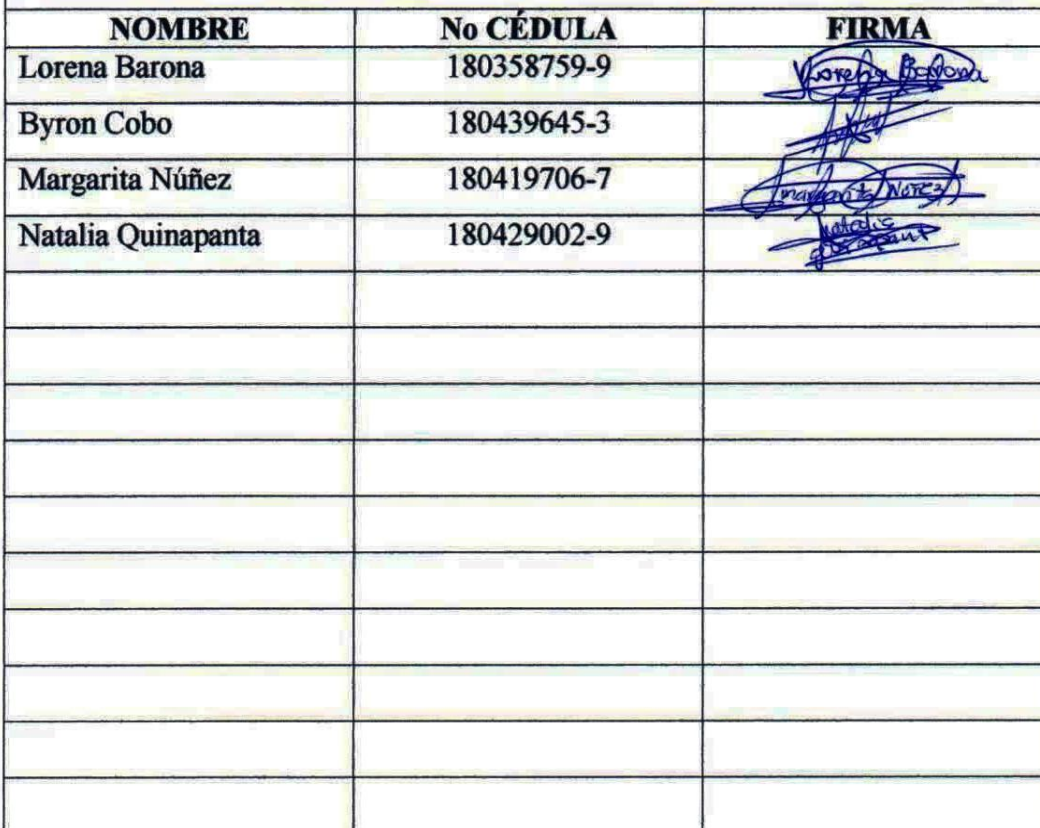 NOMBRE No CÉDULA FIRMA
Lorena Barona 180358759-9 Lorena Barona
Byron Cobo 180439645-3
Margarita Núñez 180419706-7 margarita Nuñez
Natalia Quinapanta 180429002-9 natalia